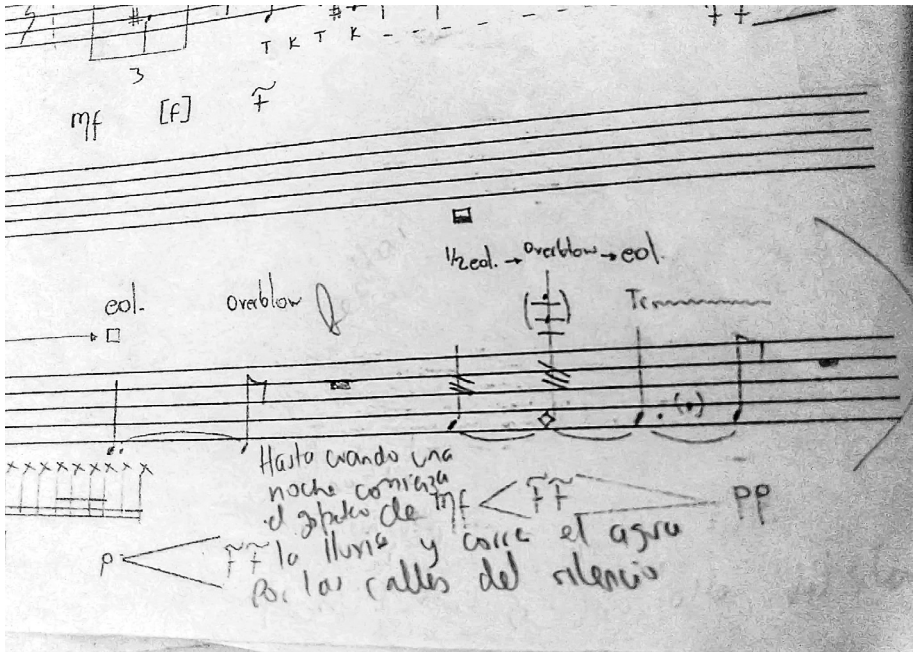 T K T K
3
mf [f] f
1/2 eol. → overblow → eol.
eol. overblow
Tr
Hasta cuando una
noche comienza
el golpeteo de mf ff pp
p ff la lluvia y corre el agua
Por las calles del silencio